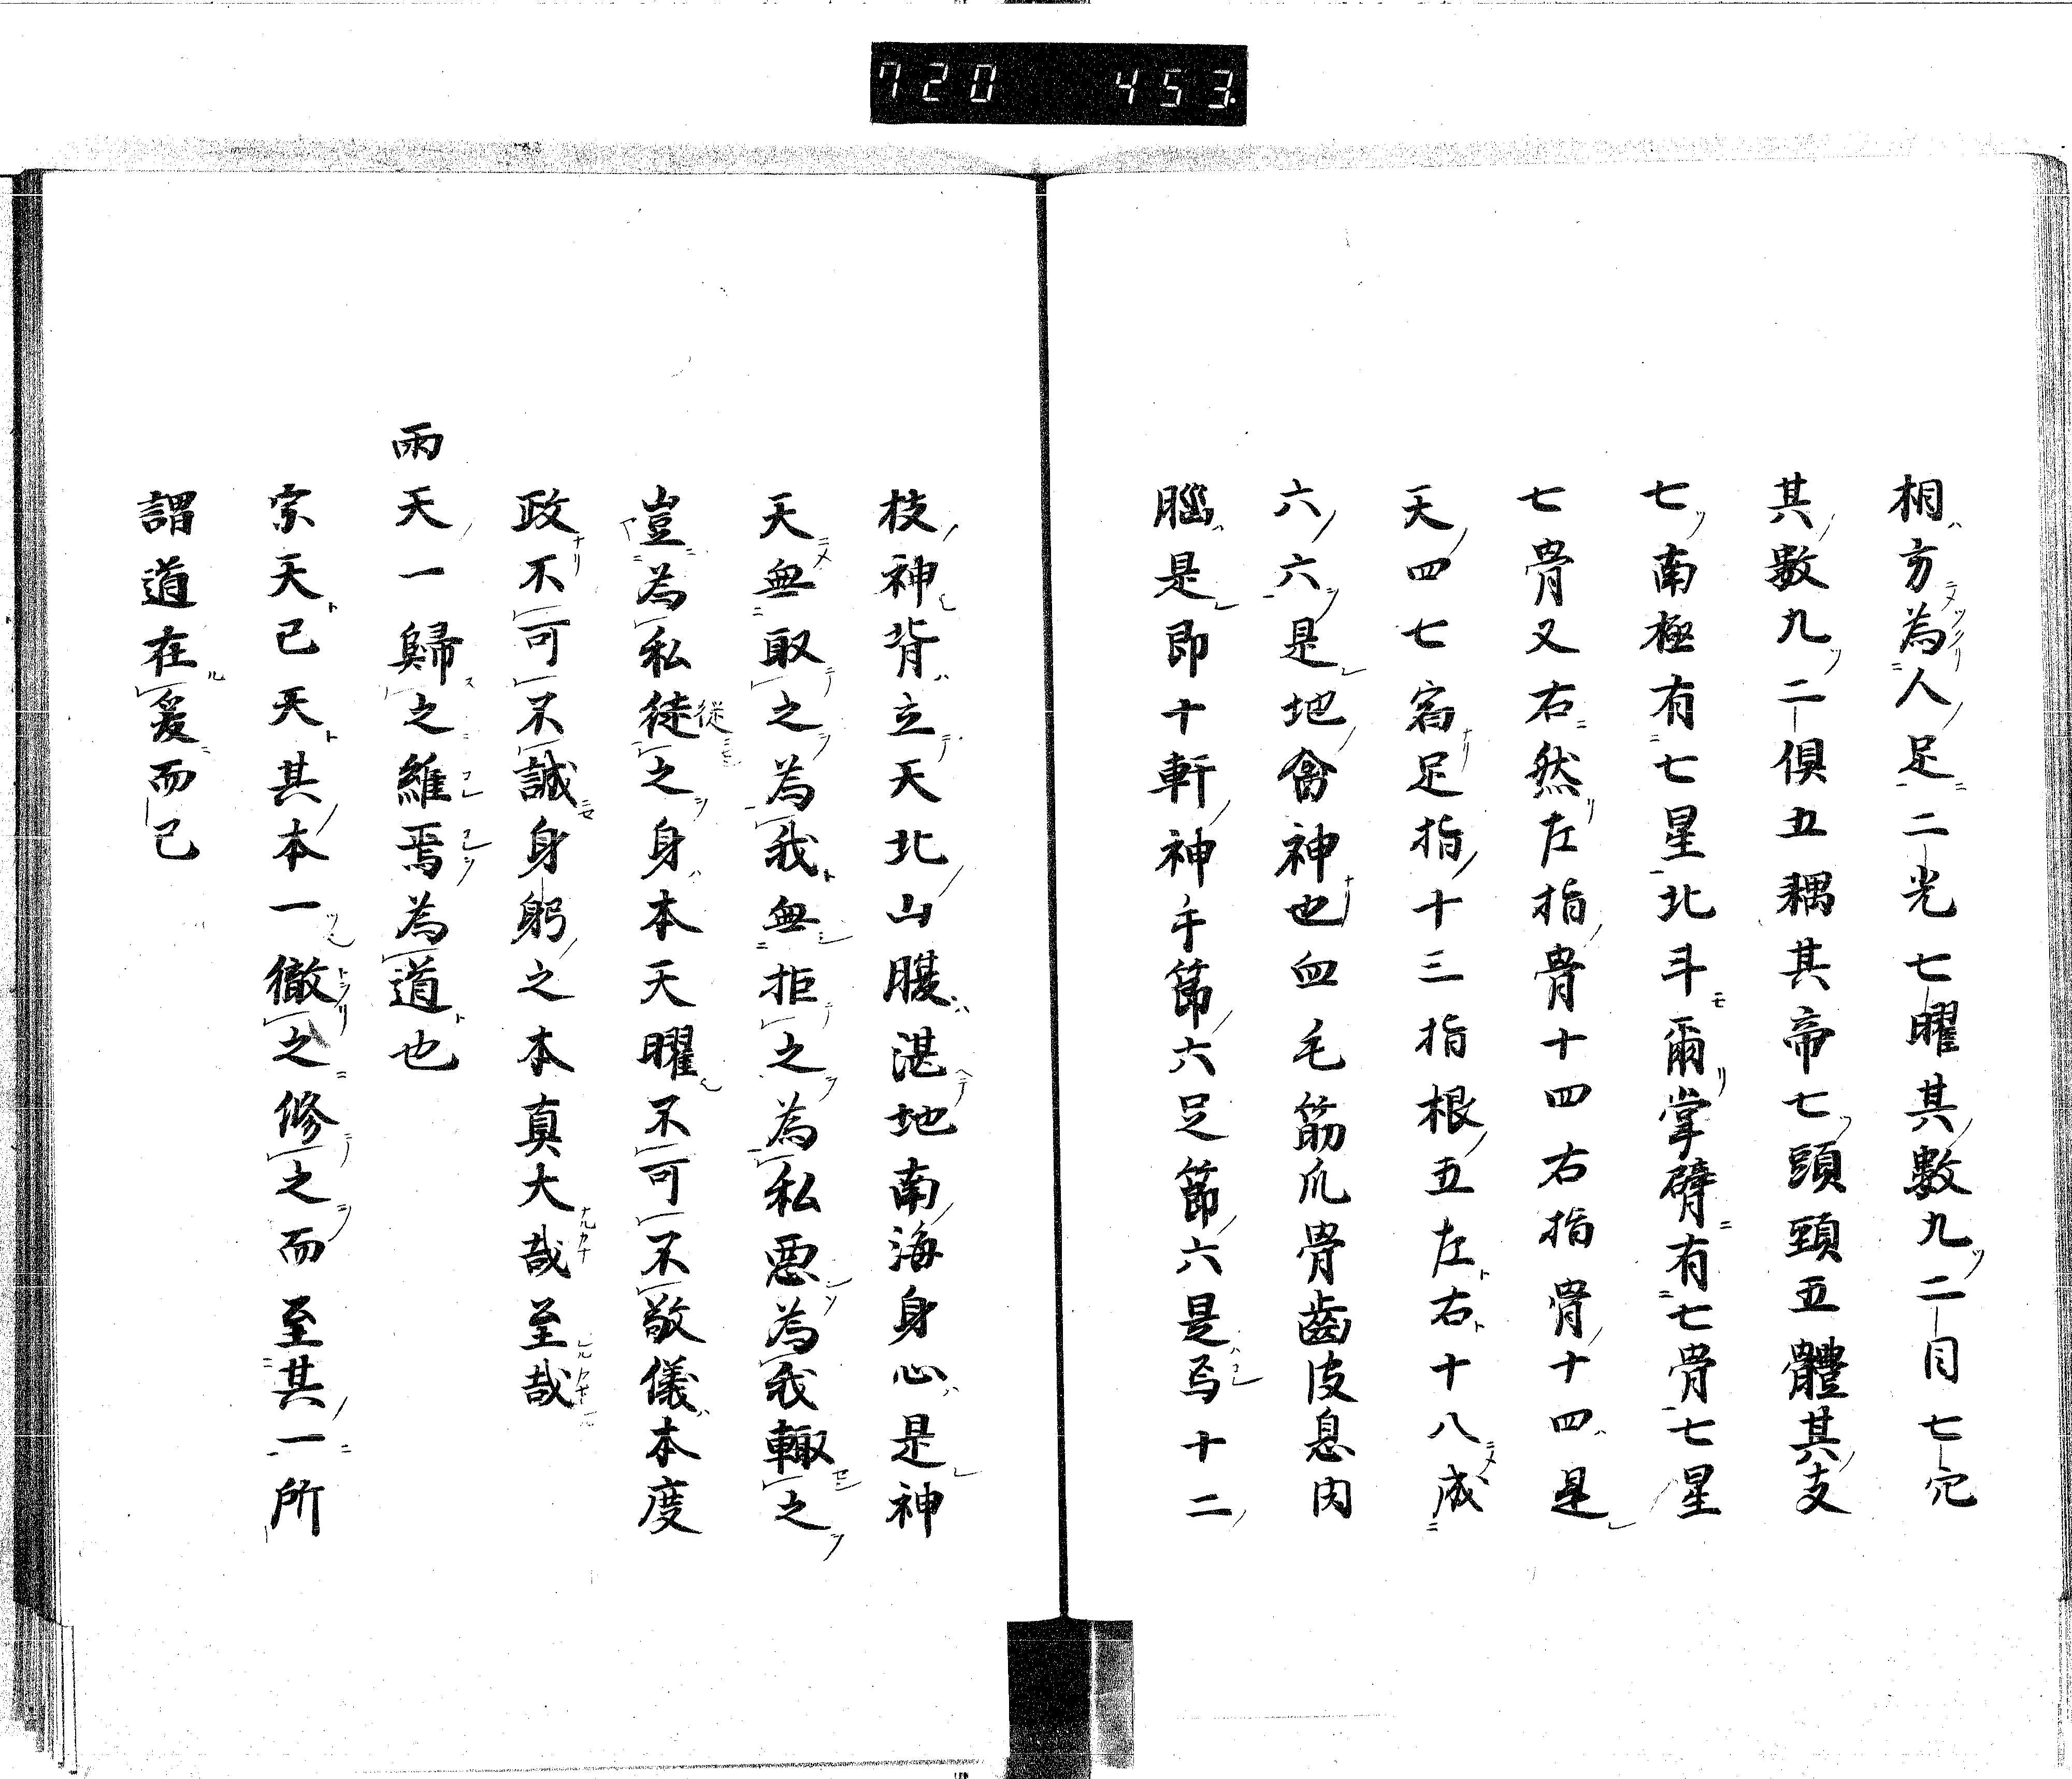 720 453
相方為人足二光七曜其數九二目七穴
其數九二俱五耦其帝七頭頸五體其支
七南極有七星北斗爾掌臂有七骨七星
七骨又右然左指骨十四右指骨十四是
天四七宿足指十三指根五左右十八成
六六是地禽神也血毛筋爪骨齒皮息肉
腦是即十軒神手節六足節六是焉十二
枝神背立天北山腹湛地南海身心是神
天無取之為我無拒之為私惡為我輙之
豈為私徒之身本天曜不可不敬儀本度
從
政不可不誠身躬之本真大哉至哉
雨天一歸之維焉為道也
宗天己天其本一徹之修之而至其一所
謂道在爰而已